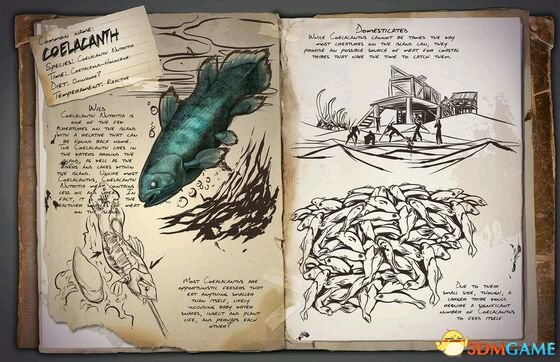 Common Name:
Coelacanth
Species: Coelacanth Nutritia
Time: Cretaceous-Holocene
Diet: Omnivore?
Temperament: Reactive
Wild
Coelacanth Nutritia
is one of the few
creatures on the island
with a relative that can
be found back home.
The Coelacanth lives in
the waters around the
island, as well as the
rivers and lakes within
the island. Unlike most
Coelacanths, Coelacanth
Nutritia meat contains
less oil and In
fact, it
healthier meat
on the
Most Coelacanths are
opportunistic feeders that
eat anything smaller
than itself, likely
including baby water
snakes, insect and plant
life, and perhaps each
other?
Domesticated
While Coelacanths cannot be tamed the way
most creatures on the island can, they
provide an possible source of meat for coastal
tribes that have the time to catch them.
Due to their
small size, though, a
larger tribe would
require a significant
number of Coelacanths
to feed itself
3DMGAME